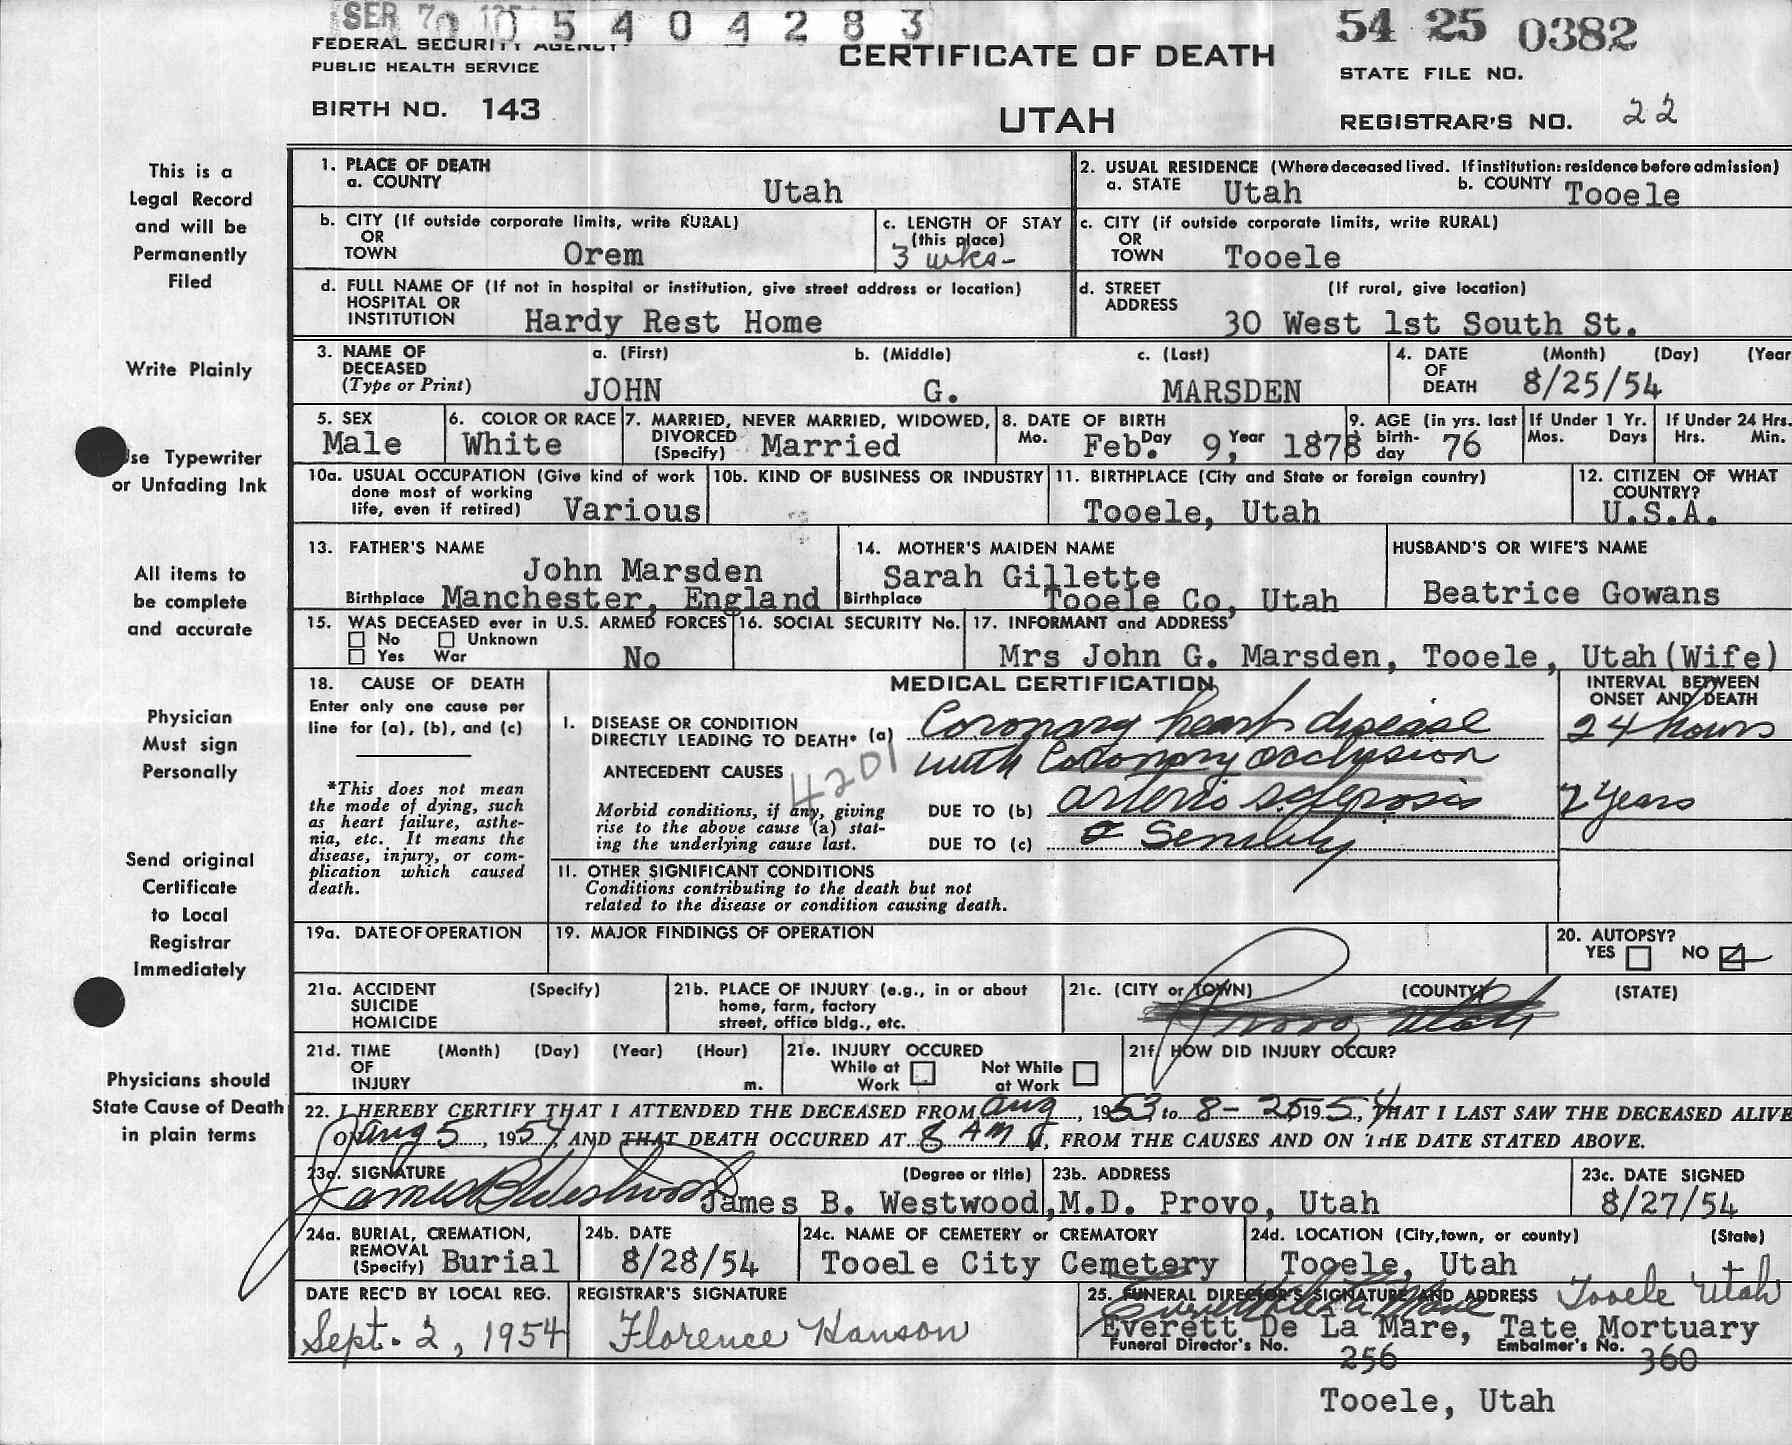 SEP 7 0 0 5 4 0 4 2 8 3
54 25 0382
FEDERAL SECURITY AGENCY
PUBLIC HEALTH SERVICE
CERTIFICATE OF DEATH
STATE FILE NO.
BIRTH NO. 143
UTAH
REGISTRAR'S NO. 22
This is a
Legal Record
and will be
Permanently
Filed
Write Plainly
Use Typewriter
or Unfading Ink
All items to
be complete
and accurate
Physician
Must sign
Personally
Send original
Certificate
to Local
Registrar
Immediately
Physicians should
State Cause of Death
in plain terms
1. PLACE OF DEATH
a. COUNTY Utah
2. USUAL RESIDENCE (Where deceased lived. If institution: residence before admission)
a. STATE Utah b. COUNTY Tooele
b. CITY (If outside corporate limits, write RURAL)
OR
TOWN Orem
c. LENGTH OF STAY
(this place)
3 wks-
c. CITY (if outside corporate limits, write RURAL)
OR
TOWN Tooele
d. FULL NAME OF (If not in hospital or institution, give street address or location)
HOSPITAL OR
INSTITUTION Hardy Rest Home
d. STREET (If rural, give location)
ADDRESS
30 West 1st South St.
3. NAME OF a. (First) b. (Middle) c. (Last)
DECEASED
(Type or Print) JOHN G. MARSDEN
4. DATE (Month) (Day) (Year
OF
DEATH 8/25/54
5. SEX
Male
6. COLOR OR RACE
White
7. MARRIED, NEVER MARRIED, WIDOWED,
DIVORCED
(Specify) Married
8. DATE OF BIRTH
Mo. Feb. Day 9, Year 1878
9. AGE (in yrs. last
birth-
day 76
If Under 1 Yr.
Mos. Days
If Under 24 Hrs.
Hrs. Min.
10a. USUAL OCCUPATION (Give kind of work
done most of working
life, even if retired) Various
10b. KIND OF BUSINESS OR INDUSTRY
11. BIRTHPLACE (City and State or foreign country)
Tooele, Utah
12. CITIZEN OF WHAT
COUNTRY?
U.S.A.
13. FATHER'S NAME
John Marsden
Birthplace Manchester, England
14. MOTHER'S MAIDEN NAME
Sarah Gillette
Birthplace Tooele Co, Utah
HUSBAND'S OR WIFE'S NAME
Beatrice Gowans
15. WAS DECEASED ever in U.S. ARMED FORCES
No Unknown
Yes War No
16. SOCIAL SECURITY No.
17. INFORMANT and ADDRESS
Mrs John G. Marsden, Tooele, Utah (Wife)
18. CAUSE OF DEATH
Enter only one cause per
line for (a), (b), and (c)
*This does not mean
the mode of dying, such
as heart failure, asthe-
nia, etc. It means the
disease, injury, or com-
plication which caused
death.
MEDICAL CERTIFICATION
INTERVAL BETWEEN
ONSET AND DEATH
I. DISEASE OR CONDITION
DIRECTLY LEADING TO DEATH* (a) Coronary heart disease 24 hours
with Coronary occlusion
ANTECEDENT CAUSES 4201
Morbid conditions, if any, giving
rise to the above cause (a) stat-
ing the underlying cause last.
DUE TO (b) arterio sclerosis 2 years
DUE TO (c) Senility
II. OTHER SIGNIFICANT CONDITIONS
Conditions contributing to the death but not
related to the disease or condition causing death.
19a. DATE OF OPERATION
19. MAJOR FINDINGS OF OPERATION
20. AUTOPSY?
YES NO
21a. ACCIDENT (Specify)
SUICIDE
HOMICIDE
21b. PLACE OF INJURY (e.g., in or about
home, farm, factory
street, office bldg., etc.
21c. (CITY or TOWN) (COUNTY) (STATE)
Provo, Utah
21d. TIME (Month) (Day) (Year) (Hour)
OF
INJURY m.
21e. INJURY OCCURED
While at Work
Not While at Work
21f. HOW DID INJURY OCCUR?
22. I HEREBY CERTIFY THAT I ATTENDED THE DECEASED FROM Aug, 1953 to 8-25 1954, THAT I LAST SAW THE DECEASED ALIVE
ON Aug 5, 1954, AND THAT DEATH OCCURED AT 8 AM, FROM THE CAUSES AND ON THE DATE STATED ABOVE.
23a. SIGNATURE (Degree or title)
James B Westwood James B. Westwood, M.D.
23b. ADDRESS
Provo, Utah
23c. DATE SIGNED
8/27/54
24a. BURIAL, CREMATION,
REMOVAL
(Specify) Burial
24b. DATE
8/28/54
24c. NAME OF CEMETERY or CREMATORY
Tooele City Cemetery
24d. LOCATION (City, town, or county) (State)
Tooele, Utah
DATE REC'D BY LOCAL REG.
Sept. 2, 1954
REGISTRAR'S SIGNATURE
Florence Hanson
25. FUNERAL DIRECTOR'S SIGNATURE AND ADDRESS Tooele Utah
Everett De La Mare
Everett De La Mare, Tate Mortuary
Funeral Director's No. 256
Embalmer's No. 360
Tooele, Utah